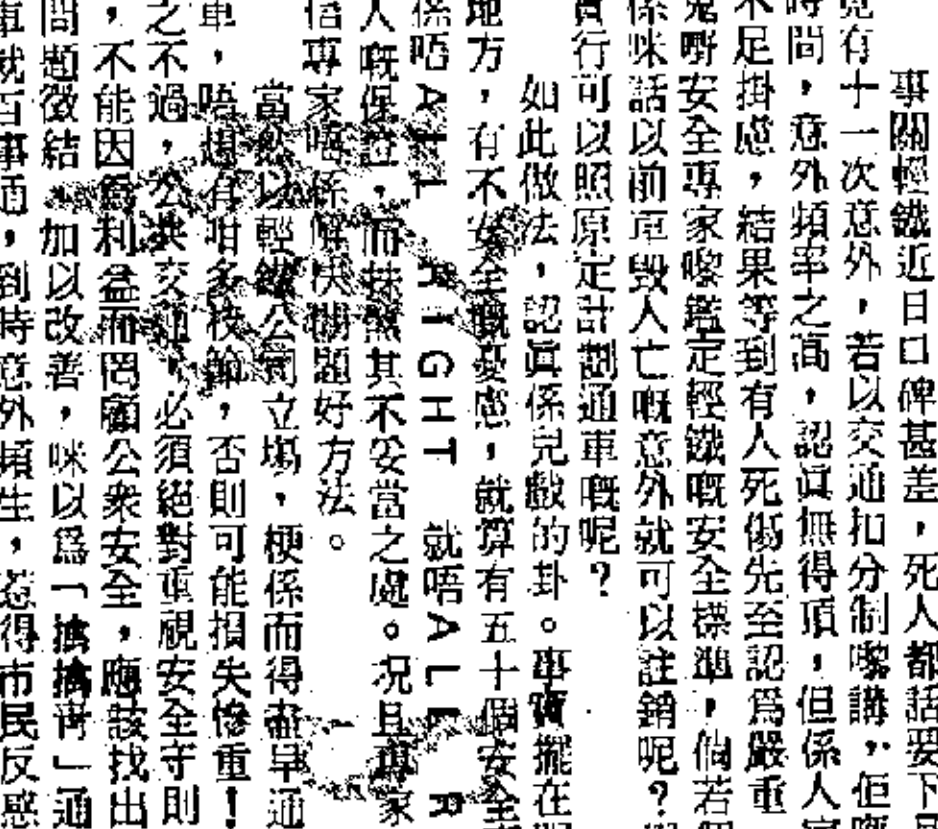 事關輕鐵近日口碑甚差，死人都話要下
有十一次意外，若以交通扣分制嚟講，但
時間，意外頻率之高，認眞無得頂，但係人
不足掛慮，結果等到有人死傷先至認爲嚴重
嘢安全專家嚟鑑定輕鐵嘅安全標準，倘若
係咪話以前車毀人亡嘅意外就可以註銷呢？
行可以照原定計劃通車嘅呢？
如此做法，認眞係兒戲的卦。事實擺在
地方，有不安全嘅憂慮，就算有五十個安全
係唔ALL RIGHT就唔ALL R
人嘅保證，而抹煞其不妥當之處。況且專家
專家唔係解決問題好方法。
當然以輕鐵公司立場，梗係而得盡早通
車，唔想有咁多枝節，否則可能損失慘重！
之不過，公共交通，必須絕對重視安全守則
，不能因爲利益而罔顧公衆安全，應該找出
問題徵結，加以改善，咪以爲「擒擒靑」通
車就百事通，到時意外頻生，惹得市民反感